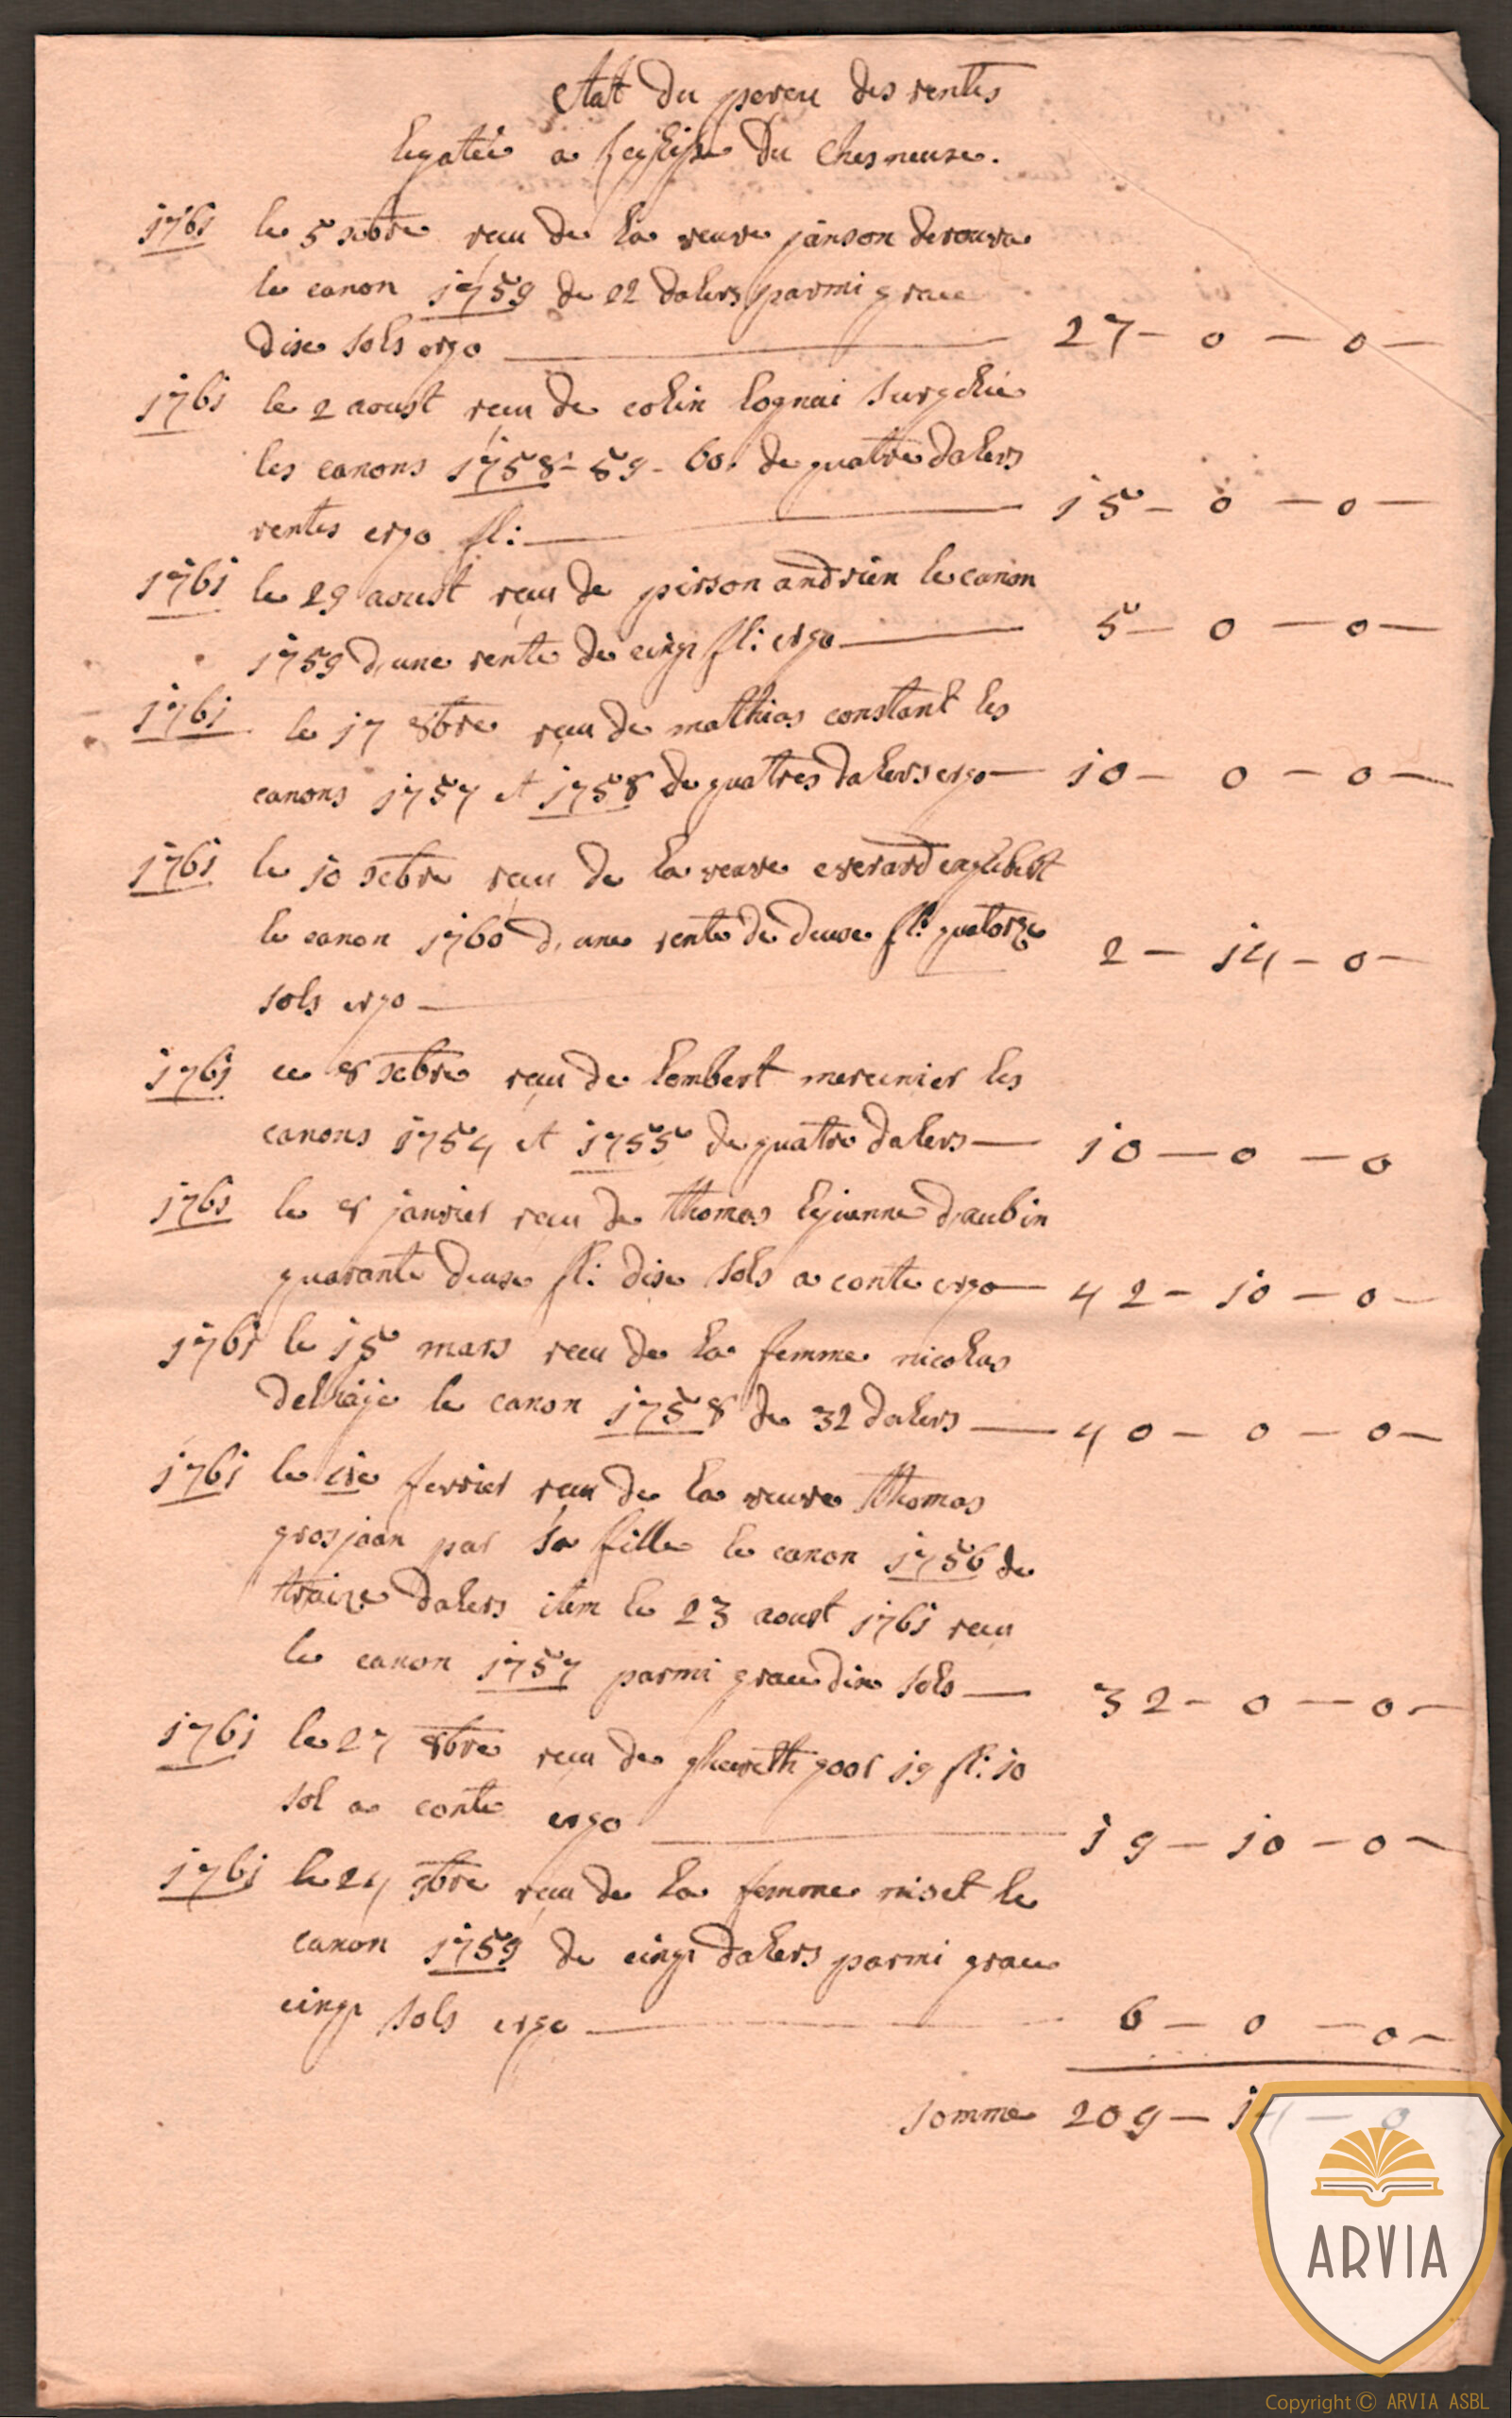 etat du perçu des rentes
legatée a leglise du Chesneuse.
1761 le 5 xbre reçu de la veuve janson derouva
le canon 1759 de 22 dalers parmi grace
dixe sols ergo 27 - 0 - 0 -
1761 le 2 aoust reçu de colin lognai
les canons 1758 - 59 - 60. de quatre dalers
rentes ergo fl: 15 - 0 - 0 -
1761 le 29 aoust reçu de pirson andrien le canon
1759 d'une rente de cinq fl: ergo 5 - 0 - 0 -
1761 le 17 8bre reçu de mathias constant les
canons 1757 et 1758 de quatres dalers ergo 10 - 0 - 0 -
1761 le 10 xbre reçu de la veuve everard englebert
le canon 1760 d'une rente de deuxe fl: quatorze 2 - 14 - 0 -
sols ergo
1761 ce 8 xbre reçu de lambert mercinier les
canons 1754 et 1755 de quatre dalers 10 - 0 - 0
1761 le 8 janvier reçu de thomas daubin
quarante deuxe fl: dixe sols a conte ergo 42 - 10 - 0 -
1761 le 15 mars reçu de la femme nicolas
delhaije le canon 1758 de 32 dalers 40 - 0 - 0 -
1761 le fevrier reçu de la veuve thomas
grosjean par sa fille le canon 1756 de
traize dalers item le 23 aoust 1761 reçu
le canon 1757 parmi grace dixe sols 32 - 0 - 0 -
1761 le 27 8bre reçu de 19 fl: 10
sol a conte ergo 19 - 10 - 0 -
1761 le 24 9bre reçu de la femme niset le
canon 1759 de cinq dalers parmi grace
cinq sols ergo 6 - 0 - 0 -
somme 209 - 14 - 0
ARVIA
Copyright © ARVIA ASBL